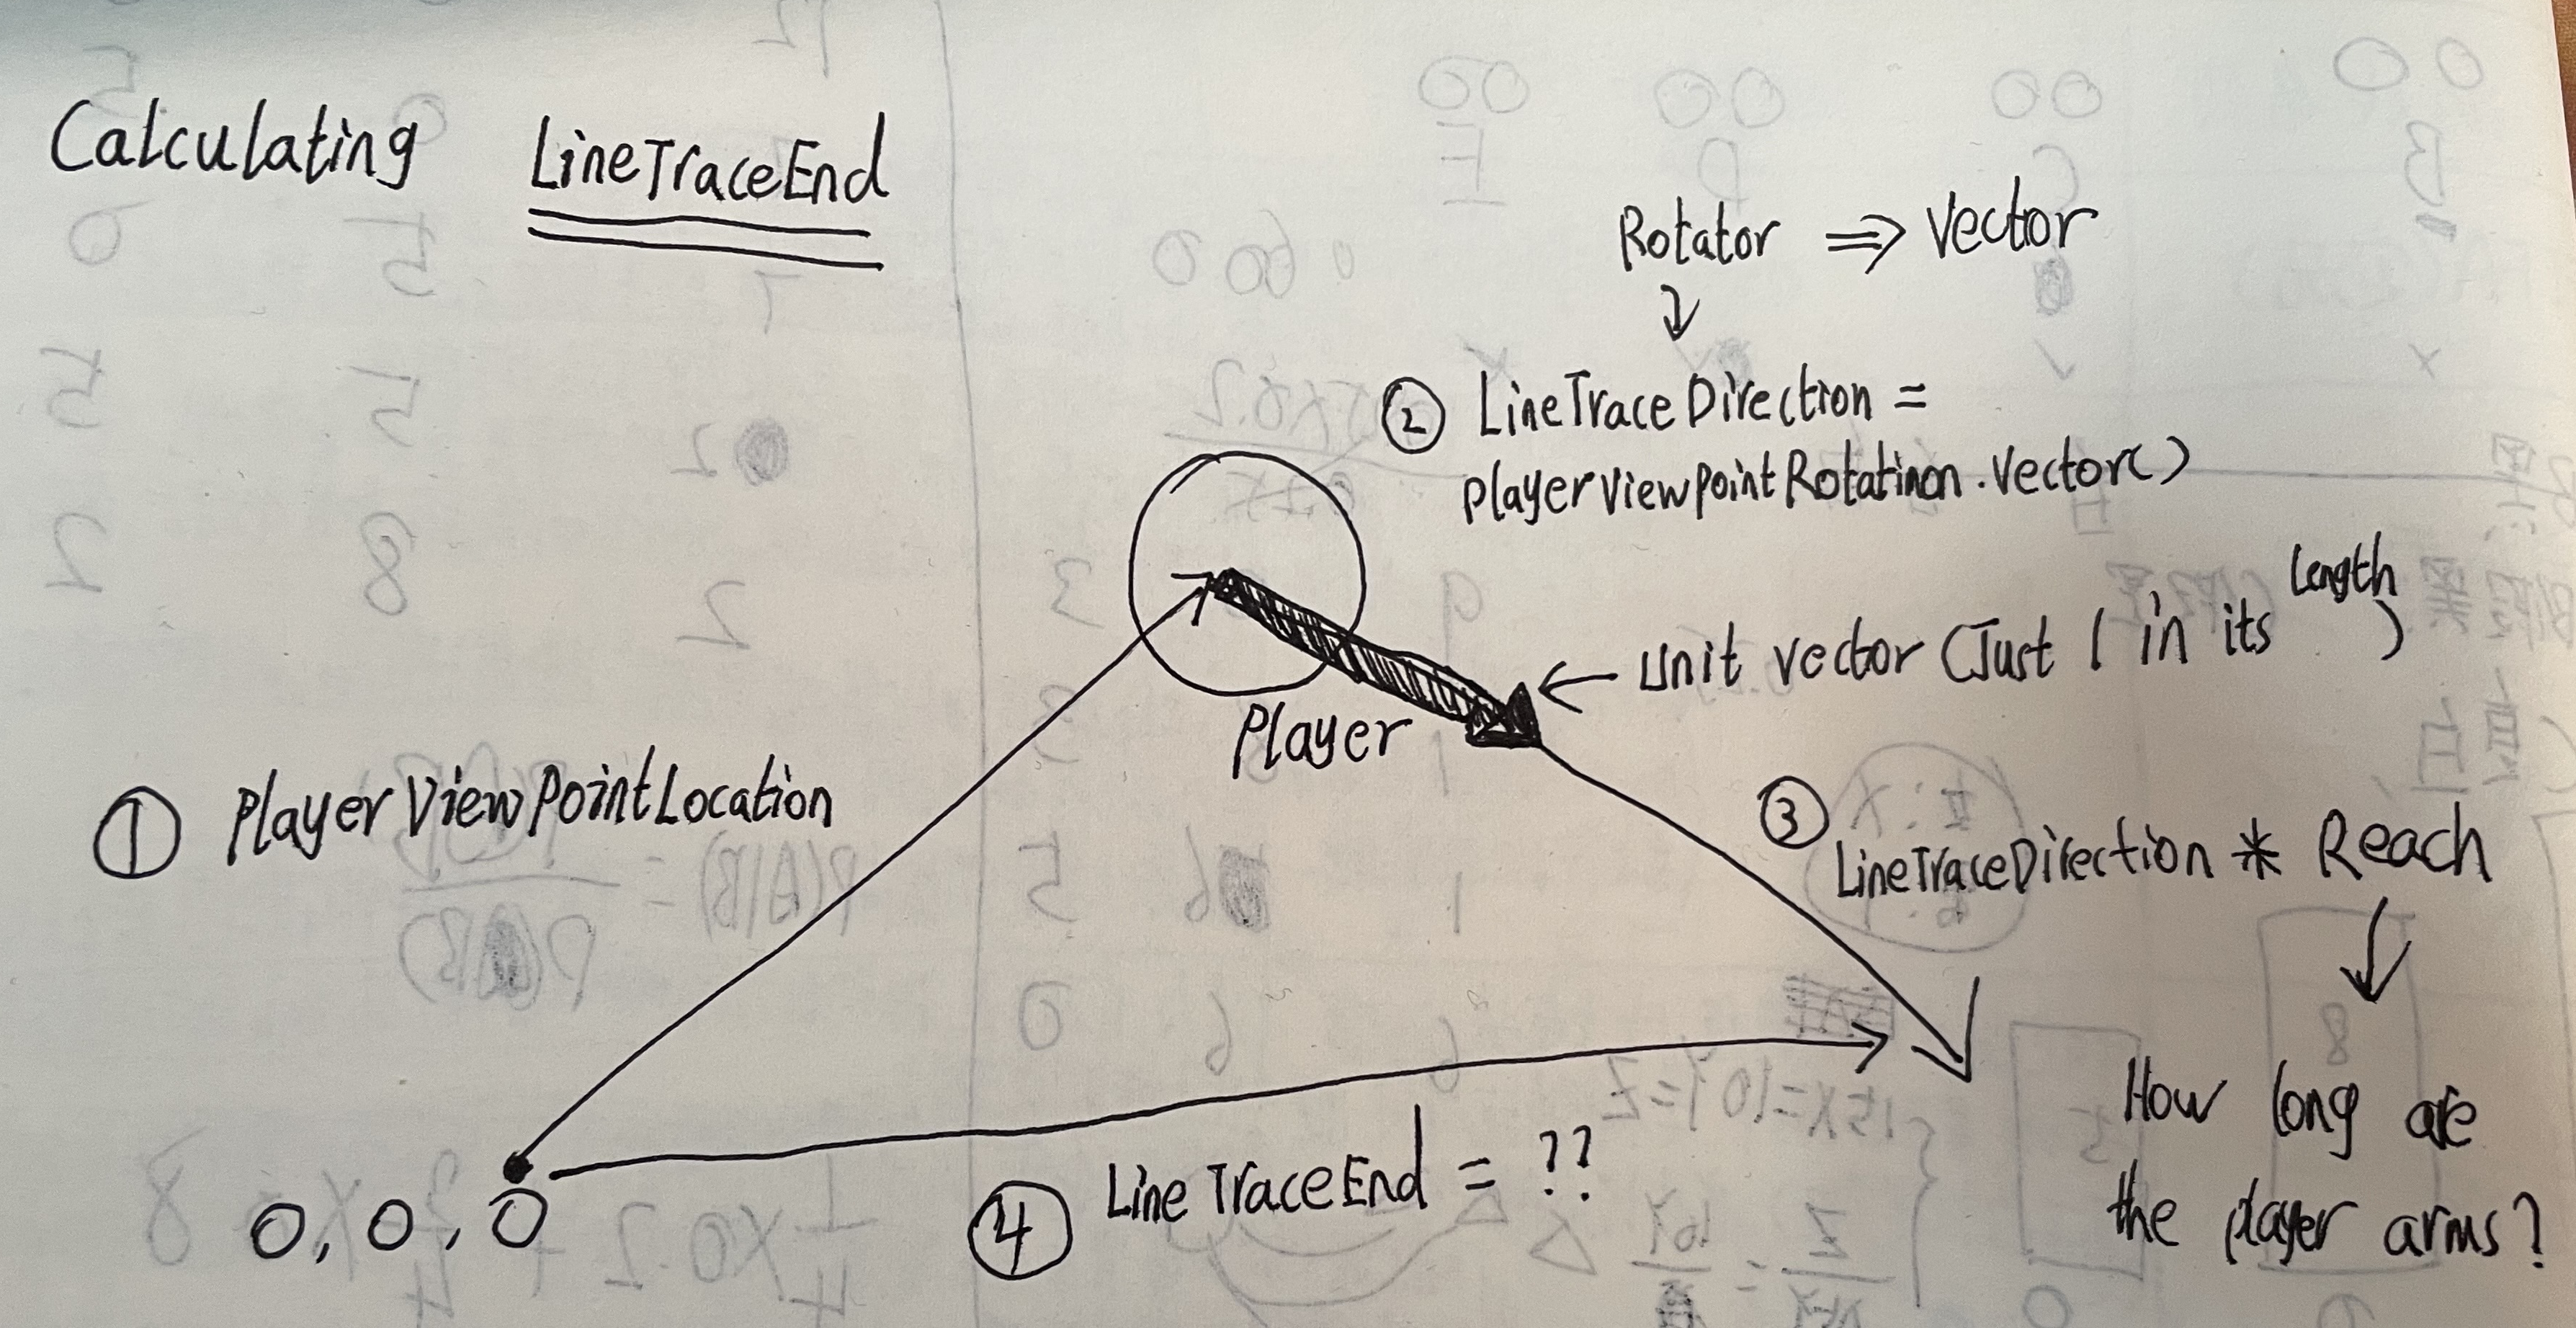 Calculating LineTraceEnd
Rotator ⇒ Vector
↓
② LineTraceDirection =
playerViewPointRotatinon.Vector()
← Unit vector (Just 1 in its length)
Player
① PlayerViewPointLocation
③ LineTraceDirection * Reach
↓
How long are
the player arms?
④ LineTraceEnd = ??
0, 0, 0